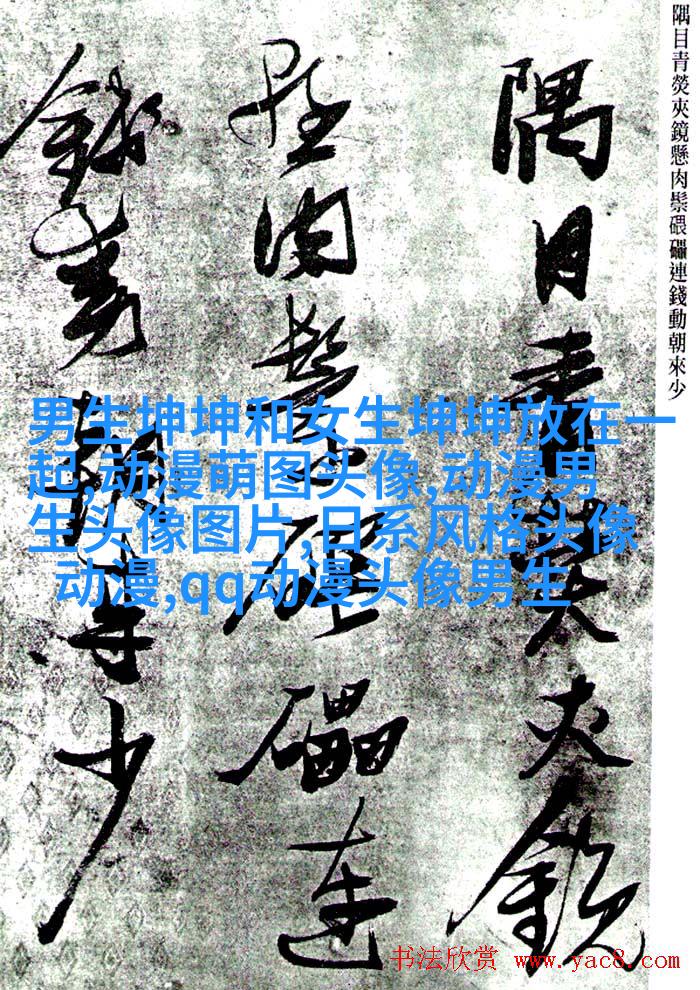 隅目青熒夾鏡懸肉鬃碨礧連錢動朝來少
隅目青熒夾鏡
懸肉鬃碨礧連
錢動朝來少
男生坤坤和女生坤坤放在一
起,动漫萌图头像,动漫男
生头像图片,日系风格头像
动漫,qq动漫头像男生
书法欣赏 www.yac8.com